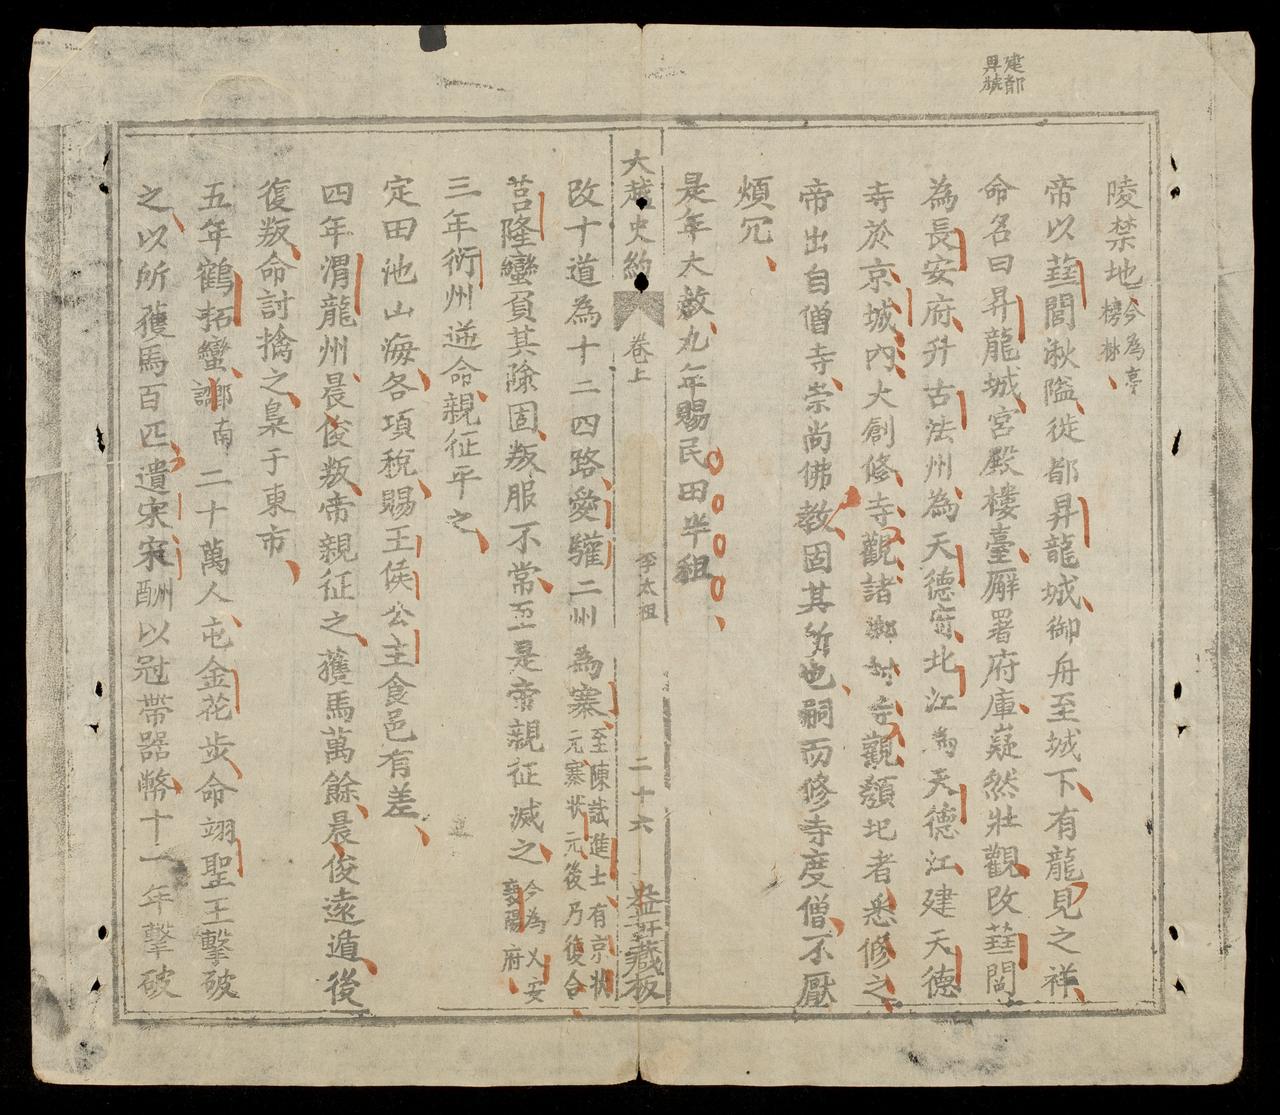 建都
昇號
陵禁地今為亭榜林
帝以華閭湫隘徙都昇龍城御舟至城下有龍見之祥
命名曰昇龍城宮殿樓臺廨署府庫嶷然壯觀改華閭
為長安府升古法州為天德府北江為天德江建天德
寺於京城內大創修寺觀諸鄉村寺觀頹圯者悉修之
帝出自僧寺崇尚佛教固其所也嗣而修寺度僧不厭
煩冗
是年大赦九年賜民田半租
大越史約 卷上 李太祖 二十六 藏板
改十道為十二四路愛驩二州為寨至陳試進士有京狀元寨狀元後乃復合
莒隆蠻負其險固叛服不常至是帝親征滅之今為乂安襄陽府
三年衍州逆命親征平之
定田池山海各項稅賜王侯公主食邑有差
四年渭龍州晨俊叛帝親征之獲馬萬餘晨俊遠遁後
復叛命討擒之梟于東市
五年鶴拓蠻南二十萬人屯金花步命翊聖王擊破
之以所獲馬百匹遺宋宋酬以冠帶器幣十一年擊破